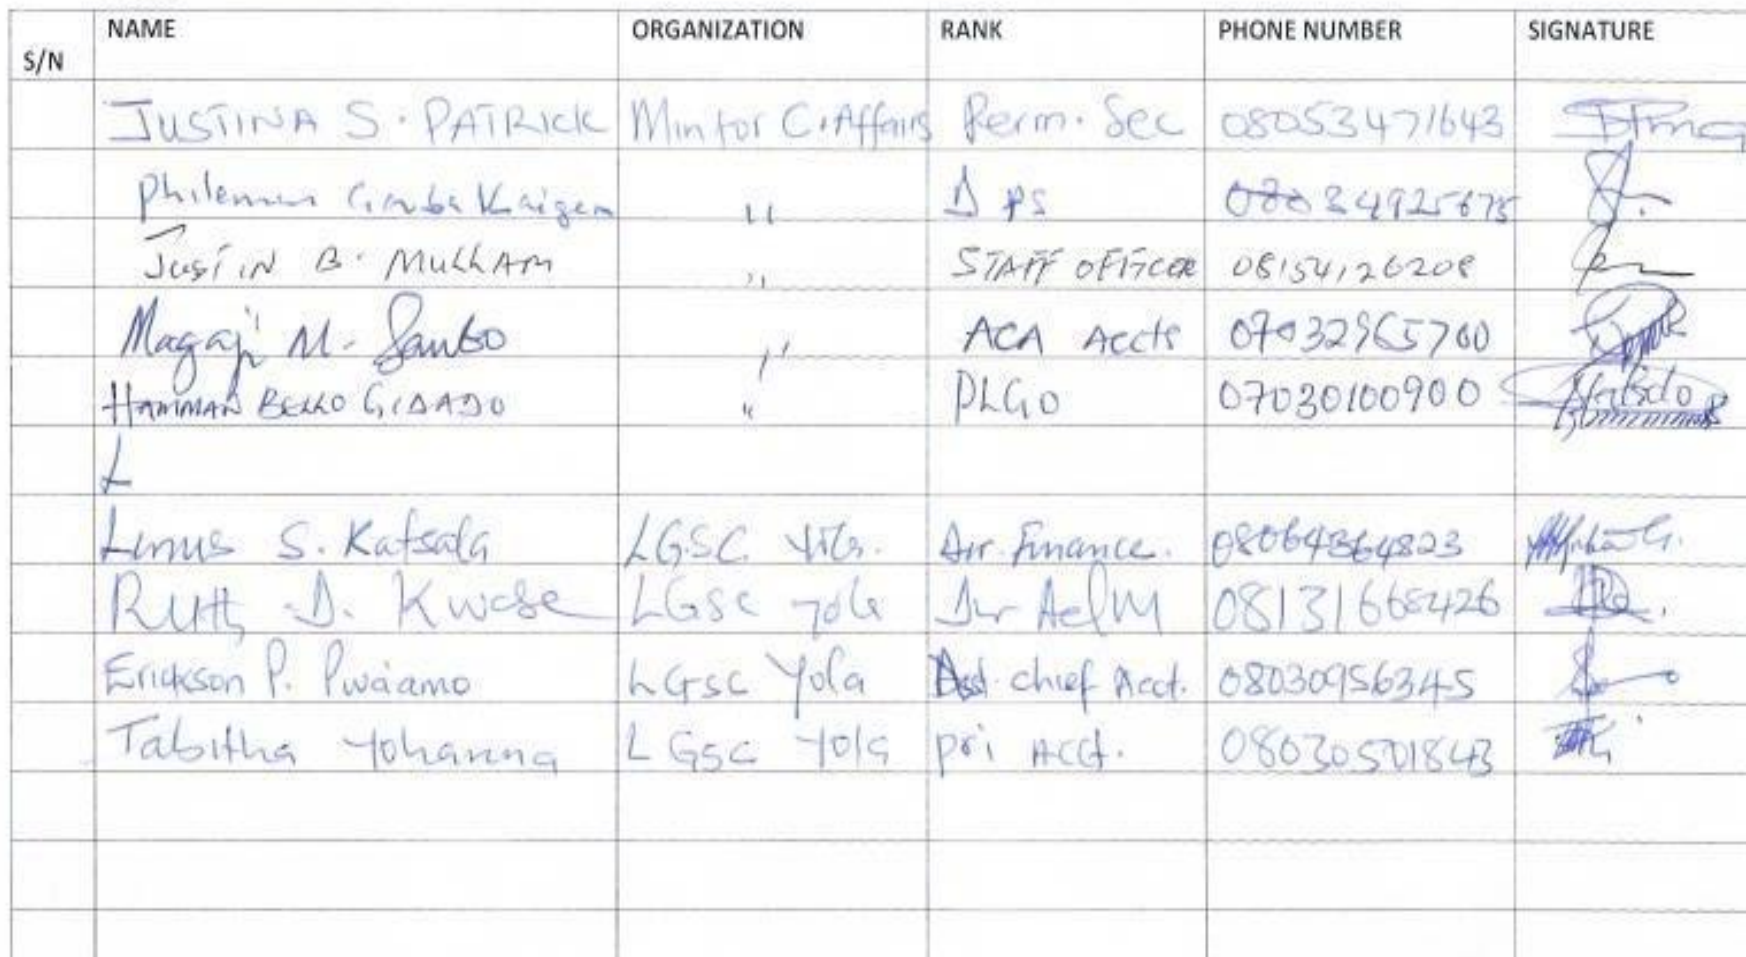 S/N NAME ORGANIZATION RANK PHONE NUMBER SIGNATURE
JUSTINA S. PATRICK Min for C. Affairs Perm. Sec 08053471643
Philemon " D PS 08034925675
JUSTIN B. MULLAM " STAFF OFFICER 08154126208
Magaji M. Sambo " ACA Accts 07032965700
HAMMAN BELLO GIDADO " DLGO 07030100900
L
Linus S. Katsala LGSC Yola. Dir. Finance. 08064364823
Ruth D. Kwase LGSC Yola Dir Adm 08131665426
Erickson P. Pwaamo LGSC Yola Asst. chief Acct. 08030956345
Tabitha Yohanna LGSC Yola pri Acct. 08030501843